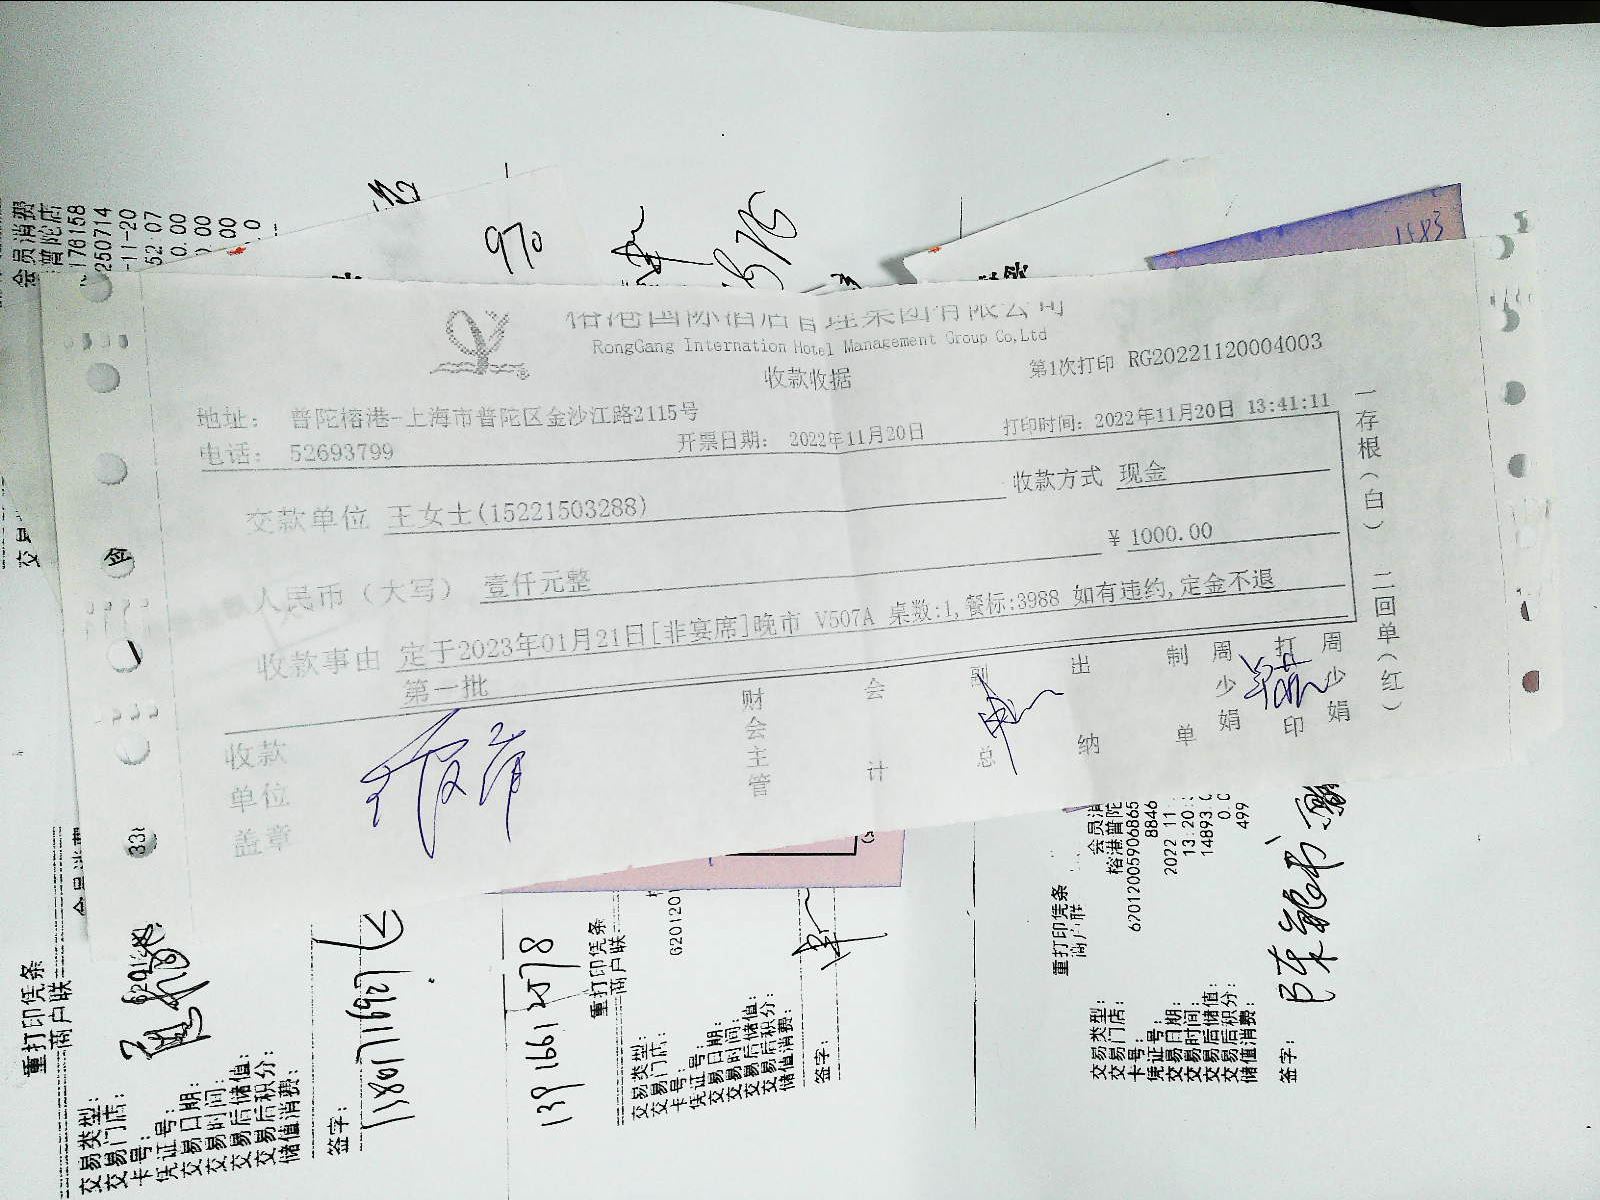 榕港国际酒店管理集团有限公司
RongGang Internation Hotel Management Group Co,Ltd
收款收据
第1次打印 RG20221120004003
地址： 普陀榕港-上海市普陀区金沙江路2115号
电话： 52693799
开票日期： 2022年11月20日
打印时间： 2022年11月20日 13:41:11
交款单位 王女士(15221503288)
收款方式 现金
人民币（大写） 壹仟元整
¥ 1000.00
收款事由 定于2023年01月21日[非宴席]晚市 V507A 桌数:1,餐标:3988 如有违约,定金不退
第一批
收款单位盖章
财会主管
会计
副总
出纳
制单
周少娟
打印
周少娟
一存根（白） 二回单（红）
会员消费
普陀店
178158
250714
-11-20
52:07
0.00
970
1583
重打印凭条
商户联
交易类型:
交易门店:
卡号:
凭证号:
交易日期:
交易时间:
交易后储值:
交易后积分:
储值消费:
签字:
13801711692
139 1661 2578
重打印凭条
商户联
620120
交易类型:
交易门店:
卡号:
凭证号:
交易日期:
交易时间:
交易后储值:
交易后积分:
储值消费:
签字:
重打印凭条
商户联
交易类型:
会员消
交易门店:
榕港普陀
卡号:
62012005906865
凭证号:
8846
交易日期:
2022 11
交易时间:
13:20:
交易后储值:
14893.
交易后积分:
0.0
储值消费:
499
签字: